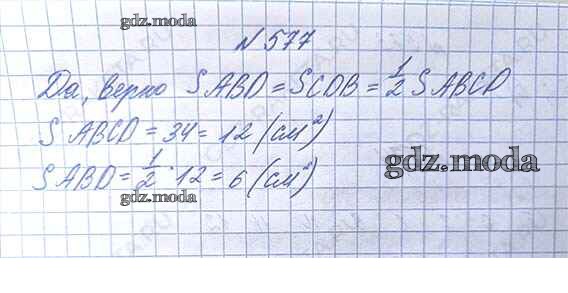 gdz.moda
N 577
Да, верно SABD = SCDB = 1/2 SABCD
SABCD = 34 = 12 (см²)
gdz.moda
SABD = 1/2 · 12 = 6 (см²)
gdz.moda